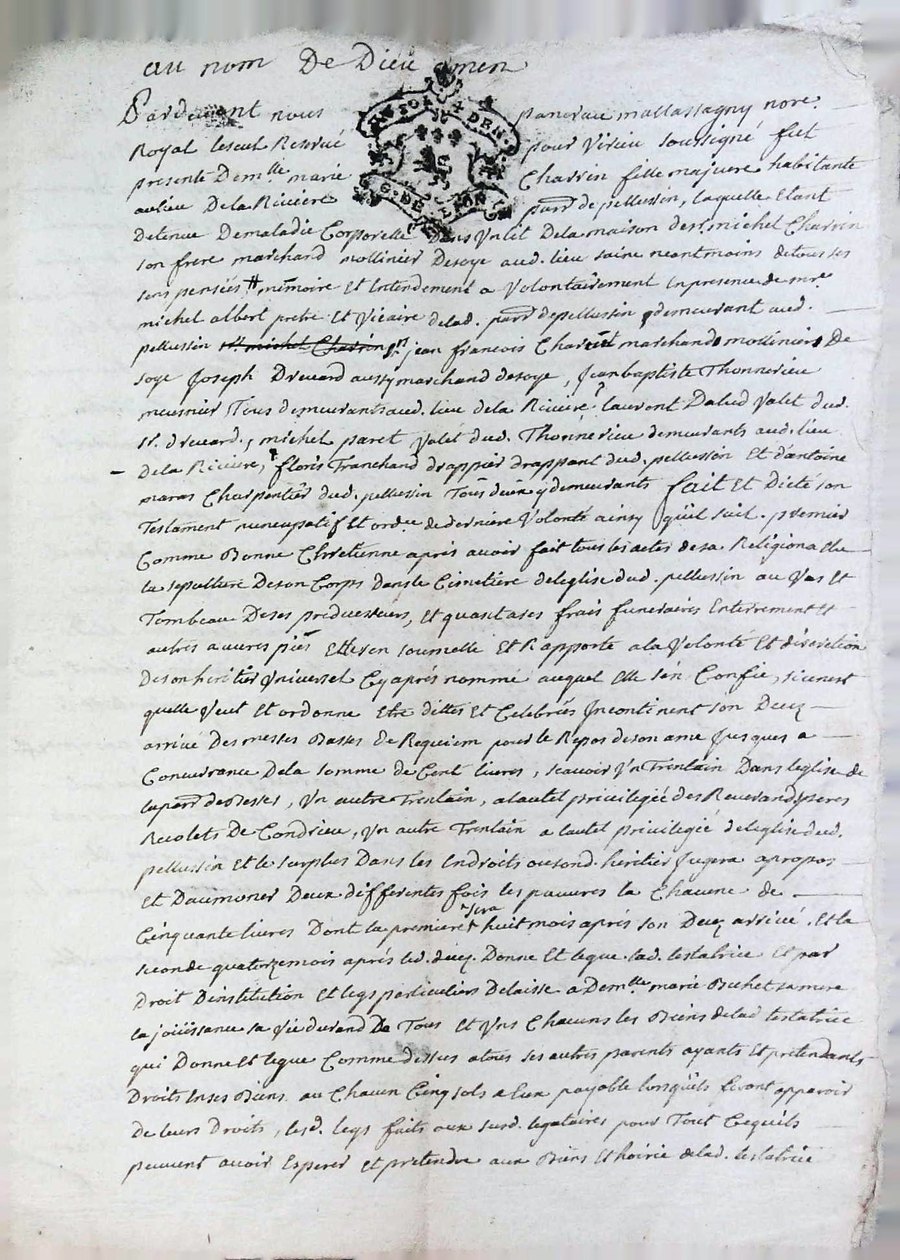 au nom De Dieu amen
Pardevant nous pancrace mallassagny nore.
Royal le seul Reservé pour Virieu soussigné fut
presente Demlle marie Charrin fille majeure habitante
au lieu De la Riviere parrd de pellussin, laquelle Etant
Detenue De maladie Corporelle Dans Un lit De la maison de sr. michel Charrin
son frere marchand mollinier De soye aud. lieu saine neantmoins de tous ses
sens pensées # mémoire Et Entendement a Volontairement en presence de mre.
michel albert pretre Et Vicaire de lad. parrd de pellussin y demeurant aud.
pellussin sr. michel Charrin sr. jean francois marchands molliniers De
soye Joseph Drevard aussy marchand de soye, Jean baptiste Thonnerieu
meusnier Tous demeurants aud. lieu de la Riviere, laurent Dalud Valet dud.
sr. drevard, michel paret Valet dud. Thonnerieu demeurants aud. lieu
De la Riviere, floris Tranchand drappier drappant dud. pellussin Et d'antoine
maras Charpentier dud. pellussin Tous deux y demeurants fait Et Dicté son
Testament nuncupatif Et ordre de derniere Volonté ainsy qu'il suit. premier
Comme Bonne Chretienne après avoir fait tous les actes de sa Religion a Elu
la sepulture De son Corps Dans le Cimetière de l'eglise dud. pellussin au Vas Et
Tombeau De ses predecesseurs, Et quant a ses frais funeraires Enterrement Et
autres œuvres pies Elle s'en soumet Et Rapporte a la Volonté Et discretion
De son heritier Universel Cy après nommé auquel Elle s'en Confie, si ce n'est
qu'elle Veut Et ordonne Etre dittes Et Celebrées Incontinent son Decez
arrivé Des messes Basses De Requiem pour le Repos de son ame Jusques a
Concurrance De la somme de Cent livres, scavoir Un Trentain Dans l'eglise de
la parrd de Besses, Un autre Trentain, a l'autel privilegiée des Reverands peres
Recolets De Condrieu, Un autre Trentain a l'autel privilegié de l'eglise dud.
pellussin Et le surplus Dans les Endroits ou sond. heritier Jugera a propos
Et D'aumoner Deux differentes fois les pauvres la Chacune de
Cinquante livres Dont la premiere sera huit mois après son Decez arrivé. Et la
seconde quatorze mois après led. decez. Donne Et legue lad. testatrice Et par
Droit D'institution Et legs particuliers Delaisse a Demlle marie Buchet sa mere
la joüissance sa Vie durand De Tous Et Uns Chacuns les Biens de lad. testatrice
qui Donne Et legue Comme dessus a tous ses autres parents ayants Et pretendants
Droits En ses Biens au Chacun Cinq sols a Eux payable lorsqu'ils feront apparoir
de leurs Droits, lesd. legs faits aux susd. legataires pour Tout Ce qu'ils
peuvent avoir Esperer Et pretendre aux Biens Et hoirie de lad. testatrice